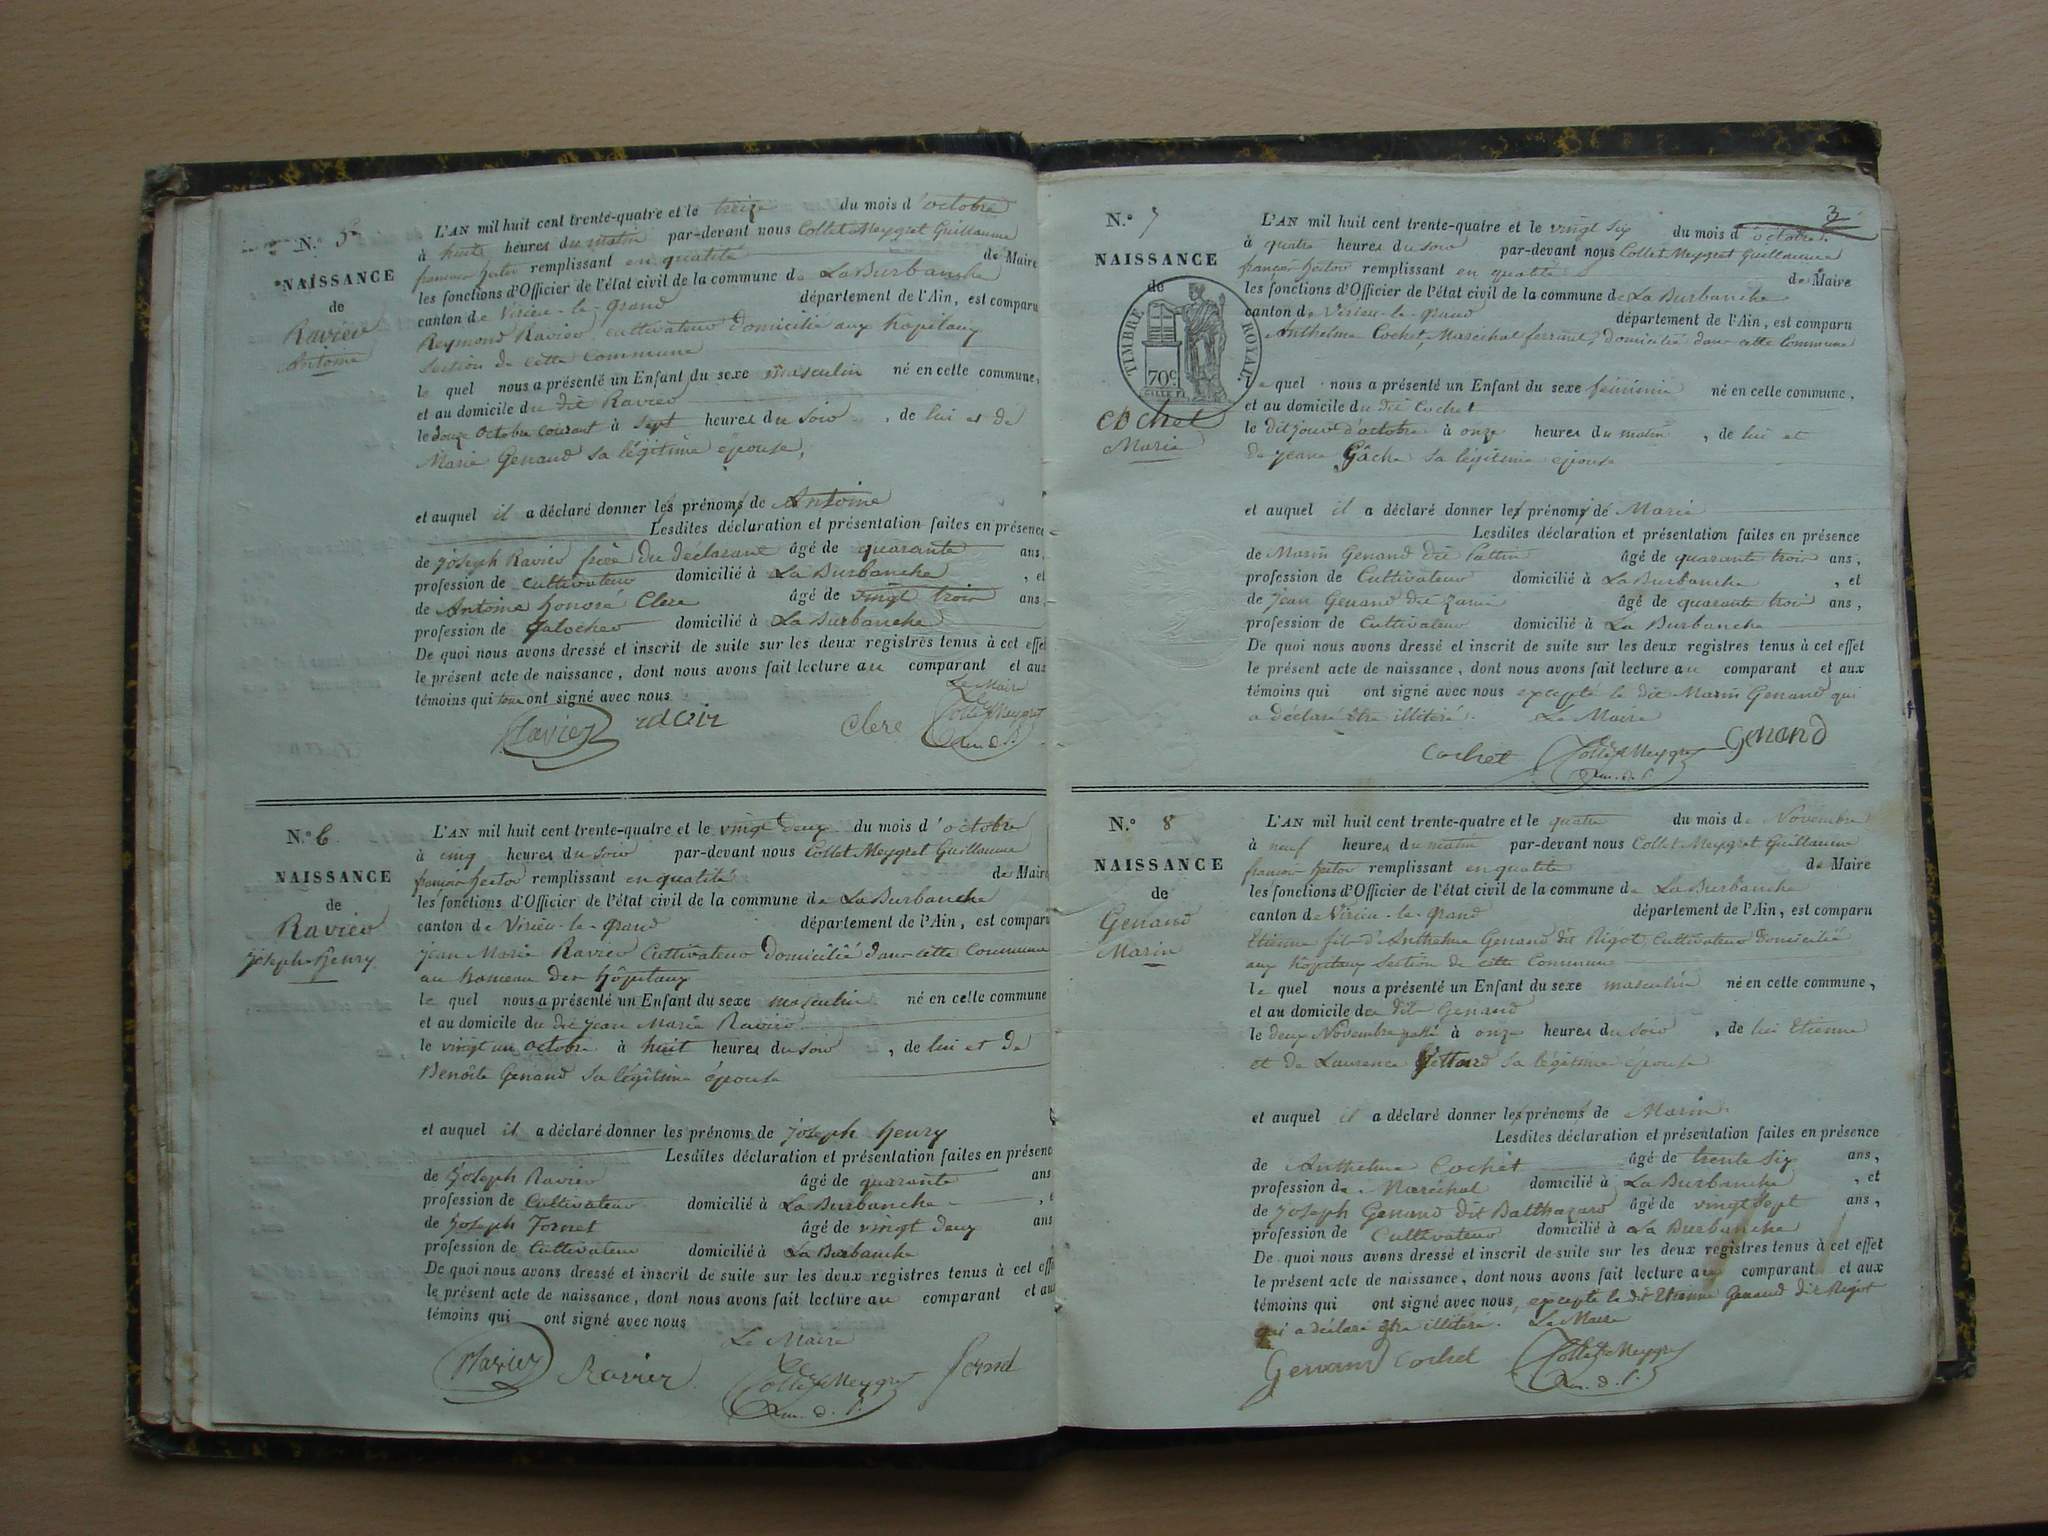 N.° 5
NAISSANCE
de
Ravier
Antoine
L'AN mil huit cent trente-quatre et le treize du mois d'octobre
à huit heures du matin par-devant nous Collet-Meygret Guillaume
françois hector remplissant en qualité de Maire
les fonctions d'Officier de l'état civil de la commune de La Burbanche
canton de Virieu-le-grand département de l'Ain, est comparu
Reymond Ravier cultivateur domicilié aux hôpitaux
section de cette commune
le quel nous a présenté un Enfant du sexe masculin né en cette commune,
et au domicile du dit Ravier
le douze octobre courant à sept heures du soir, de lui et de
Marie Genand sa légitime épouse,
et auquel il a déclaré donner les prénoms de Antoine
Lesdites déclaration et présentation faites en présence
de joseph Ravier frère du déclarant âgé de quarante ans,
profession de cultivateur domicilié à La Burbanche, et
de Antoine honoré Clerc âgé de vingt trois ans,
profession de galocher domicilié à La Burbanche
De quoi nous avons dressé et inscrit de suite sur les deux registres tenus à cet effet
le présent acte de naissance, dont nous avons fait lecture au comparant et aux
témoins qui tous ont signé avec nous
Le Maire
Ravier Clerc Collet-Meygret
N.° 6
NAISSANCE
de
Ravier
joseph-henry
L'AN mil huit cent trente-quatre et le vingt deux du mois d'octobre
à cinq heures du soir par-devant nous Collet-Meygret Guillaume
françois hector remplissant en qualité de Maire
les fonctions d'Officier de l'état civil de la commune de La Burbanche
canton de Virieu-le-grand département de l'Ain, est comparu
jean Marie Ravier Cultivateur domicilié dans cette Commune
au hameau des hôpitaux
le quel nous a présenté un Enfant du sexe masculin né en cette commune
et au domicile du dit jean Marie Ravier
le vingt un octobre à huit heures du soir, de lui et de
Benoîte Genand sa légitime épouse
et auquel il a déclaré donner les prénoms de joseph henry
Lesdites déclaration et présentation faites en présence
de joseph Ravier âgé de quarante ans
profession de Cultivateur domicilié à La Burbanche, et
de joseph Fornet âgé de vingt deux ans
profession de Cultivateur domicilié à La Burbanche
De quoi nous avons dressé et inscrit de suite sur les deux registres tenus à cet effet
le présent acte de naissance, dont nous avons fait lecture au comparant et aux
témoins qui ont signé avec nous
Le Maire
Ravier Ravier Collet-Meygret
3
N.° 7
NAISSANCE
de
TIMBRE ROYAL
70c
Cochet
Marie
L'AN mil huit cent trente-quatre et le vingt six du mois d'octobre
à quatre heures du soir par-devant nous Collet-Meygret Guillaume
françois hector remplissant en qualité de Maire
les fonctions d'Officier de l'état civil de la commune de La Burbanche
canton de Virieu-le-grand département de l'Ain, est comparu
Anthelme Cochet, Maréchal ferrant, domicilié dans cette Commune
le quel nous a présenté un Enfant du sexe féminin né en cette commune,
et au domicile du dit Cochet
le dit jour d'octobre à onze heures du matin, de lui et
de jeane Gâche sa légitime épouse
et auquel il a déclaré donner les prénoms de Marie
Lesdites déclaration et présentation faites en présence
de Marin Genand dit âgé de quarante trois ans,
profession de Cultivateur domicilié à La Burbanche, et
de jean Genand dit âgé de quarante trois ans,
profession de Cultivateur domicilié à La Burbanche
De quoi nous avons dressé et inscrit de suite sur les deux registres tenus à cet effet
le présent acte de naissance, dont nous avons fait lecture au comparant et aux
témoins qui ont signé avec nous excepté le dit Marin Genand qui
a déclaré être illitéré. Le Maire
Cochet Collet-Meygret Genand
N.° 8
NAISSANCE
de
Genand
Marin
L'AN mil huit cent trente-quatre et le quatre du mois de Novembre
à neuf heures du matin par-devant nous Collet-Meygret Guillaume
françois hector remplissant en qualité de Maire
les fonctions d'Officier de l'état civil de la commune de La Burbanche
canton de Virieu-le-grand département de l'Ain, est comparu
Etienne fils d'Anthelme Genand dit Rigot, Cultivateur domicilié
aux hôpitaux section de cette Commune
le quel nous a présenté un Enfant du sexe masculin né en cette commune,
et au domicile de dit Genand
le deux Novembre à onze heures du soir, de lui Etienne
et de Laurence sa légitime épouse
et auquel il a déclaré donner les prénoms de Marin
Lesdites déclaration et présentation faites en présence
de Anthelme Cochet âgé de trente six ans,
profession de Maréchal domicilié à La Burbanche, et
de joseph Genand dit Balthazard âgé de vingt sept ans,
profession de Cultivateur domicilié à La Burbanche
De quoi nous avons dressé et inscrit de suite sur les deux registres tenus à cet effet
le présent acte de naissance, dont nous avons fait lecture au comparant et aux
témoins qui ont signé avec nous, excepté le dit Etienne Genand dit Rigot
qui a déclaré être illitéré. Le Maire
Genand Cochet Collet-Meygret